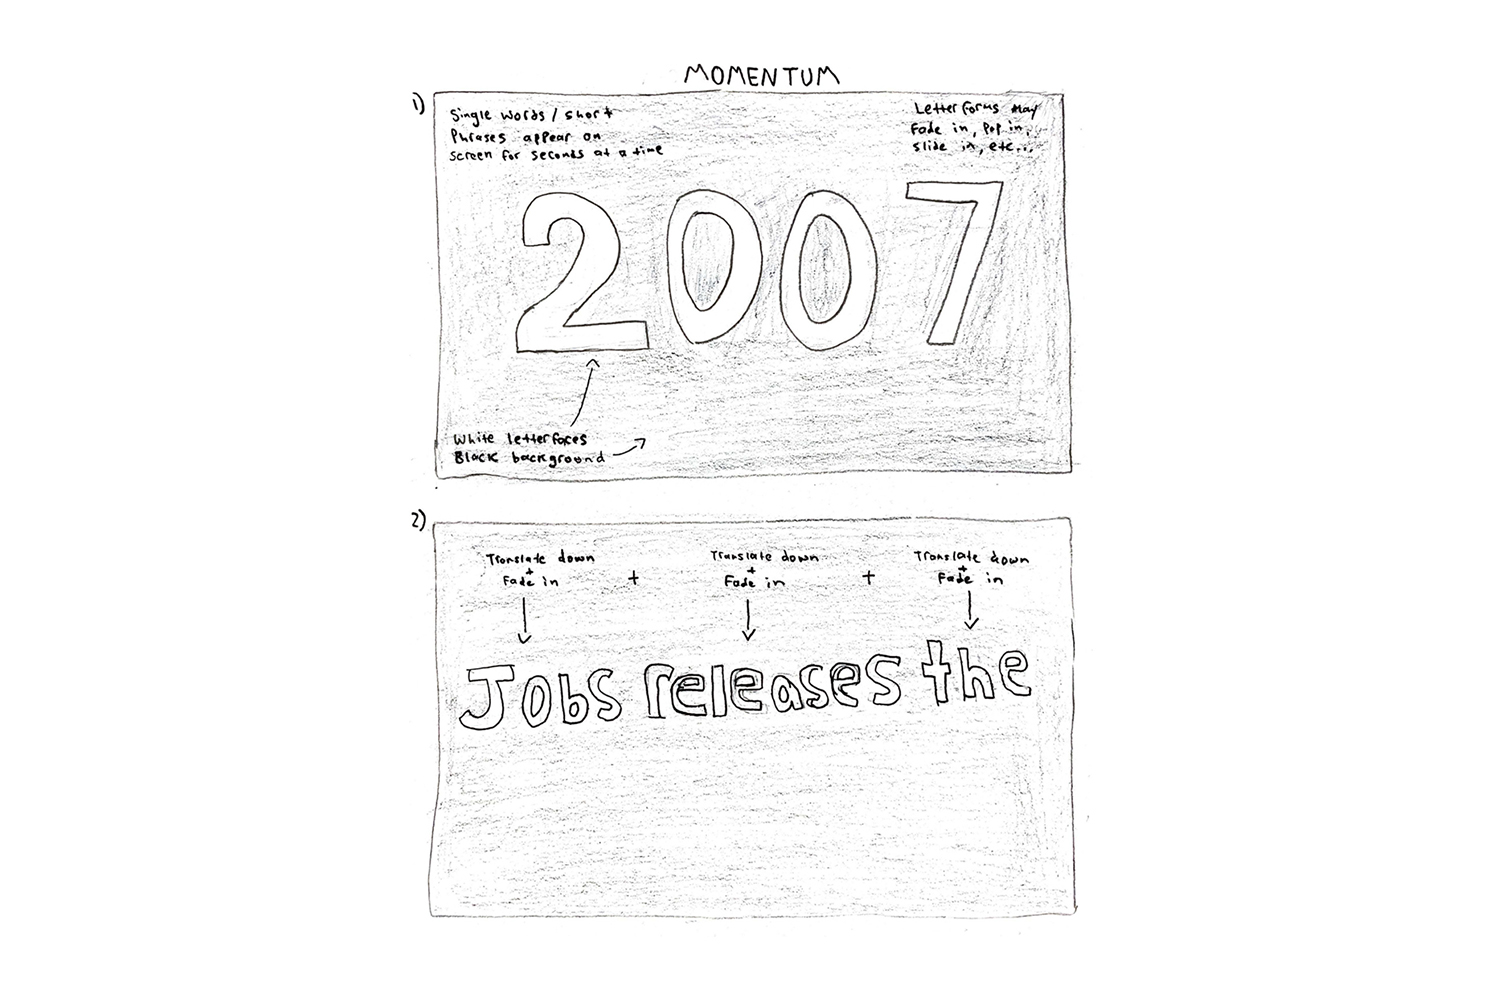 MOMENTUM
1)
Single words / short
Phrases appear on
screen for seconds at a time
Letterforms may
Fade in, Pop in,
slide in, etc...
2007
White letterfaces
Black background
2)
Translate down
+
Fade in
+
Translate down
+
Fade in
+
Translate down
+
Fade in
Jobs releases the